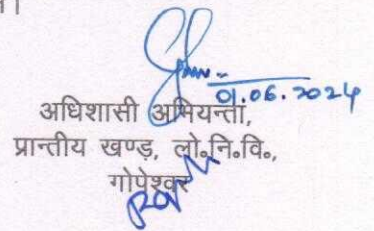 01.06.2024
अधिशासी अभियन्ता,
प्रान्तीय खण्ड, लो०नि०वि०,
गोपेश्वर